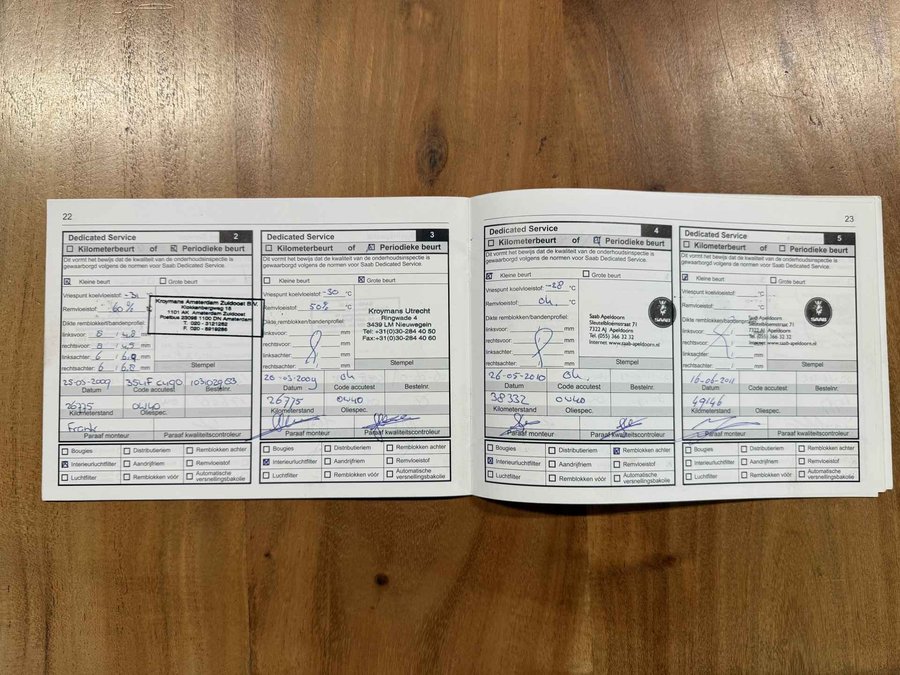 22
Dedicated Service 2
Kilometerbeurt of Periodieke beurt
Dit vormt het bewijs dat de kwaliteit van de onderhoudsinspectie is
gewaarborgd volgens de normen voor Saab Dedicated Service.
Kleine beurt Grote beurt
Vriespunt koelvloeistof: -31 °C
Remvloeistof: 60%
Kroymans Amsterdam Zuidoost B.V.
Klokkenbergweg 15
1101 AK Amsterdam Zuidoost
Postbus 23095 1100 DN Amsterdam
T. 020 - 3121282
Dikte remblokken/bandenprofiel:
linksvoor: 8 mm
rechtsvoor: 8 mm
linksachter: 6 mm
rechtsachter: 6 6.8 mm
Stempel
Datum Code accutest: Bestelnr.
26775 0W40
Kilometerstand Oliespec.
Frank
Paraaf monteur Paraaf kwaliteitscontroleur
Bougies Distributieriem Remblokken achter
Interieurluchtfilter Aandrijfriem Remvloeistof
Luchtfilter Remblokken vóór Automatische
versnellingsbakolie
Dedicated Service 3
Kilometerbeurt of Periodieke beurt
Dit vormt het bewijs dat de kwaliteit van de onderhoudsinspectie is
gewaarborgd volgens de normen voor Saab Dedicated Service.
Kleine beurt Grote beurt
Vriespunt koelvloeistof: -30 °C
Remvloeistof: 50%
Kroymans Utrecht
Ringwade 4
3439 LM Nieuwegein
Tel: +31(0)30-284 40 50
Fax:+31(0)30-284 40 60
Dikte remblokken/bandenprofiel:
linksvoor: mm
rechtsvoor: mm
linksachter: mm
rechtsachter: mm
Stempel
-03-2009 ok
Datum Code accutest: Bestelnr.
26775 0W40
Kilometerstand Oliespec.
Paraaf monteur Paraaf kwaliteitscontroleur
Bougies Distributieriem Remblokken achter
Interieurluchtfilter Aandrijfriem Remvloeistof
Luchtfilter Remblokken vóór Automatische
versnellingsbakolie
23
Dedicated Service 4
Kilometerbeurt of Periodieke beurt
Dit vormt het bewijs dat de kwaliteit van de onderhoudsinspectie is
gewaarborgd volgens de normen voor Saab Dedicated Service.
Kleine beurt Grote beurt
Vriespunt koelvloeistof: -28 °C
Remvloeistof: ok.
Saab Apeldoorn
Sleutelbloemstraat 71
7322 AJ Apeldoorn
Tel. (055) 366 32 32
Internet www.saab-apeldoorn.nl
Dikte remblokken/bandenprofiel:
linksvoor: mm
rechtsvoor: mm
linksachter: mm
rechtsachter: mm
Stempel
26-05-2010 ok,
Datum Code accutest: Bestelnr.
38332 0W40
Kilometerstand Oliespec.
Paraaf monteur Paraaf kwaliteitscontroleur
Bougies Distributieriem Remblokken achter
Interieurluchtfilter Aandrijfriem Remvloeistof
Luchtfilter Remblokken vóór Automatische
versnellingsbakolie
Dedicated Service 5
Kilometerbeurt of Periodieke beurt
Dit vormt het bewijs dat de kwaliteit van de onderhoudsinspectie is
gewaarborgd volgens de normen voor Saab Dedicated Service.
Kleine beurt Grote beurt
Vriespunt koelvloeistof: °C
Remvloeistof:
Saab Apeldoorn
Sleutelbloemstraat 71
7322 AJ Apeldoorn
Tel. (055) 366 32 32
Internet: www.saab-apeldoorn.nl
Dikte remblokken/bandenprofiel:
linksvoor: mm
rechtsvoor: mm
linksachter: mm
rechtsachter: mm
Stempel
16-06-2011
Datum Code accutest: Bestelnr.
49146
Kilometerstand Oliespec.
Paraaf monteur Paraaf kwaliteitscontroleur
Bougies Distributieriem Remblokken achter
Interieurluchtfilter Aandrijfriem Remvloeistof
Luchtfilter Remblokken vóór Automatische
versnellingsbakolie